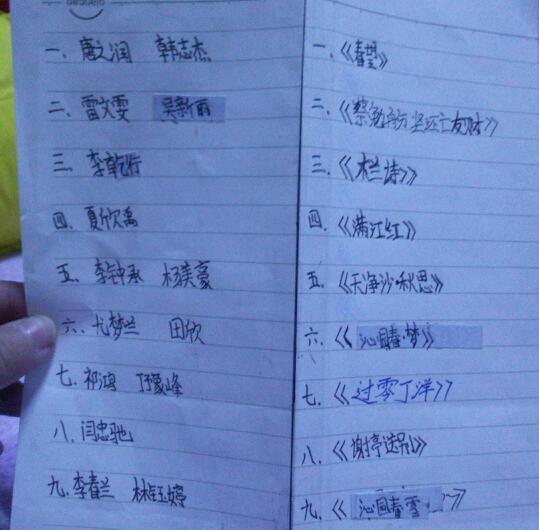 一、唐文润 韩志杰
二、雷文雯 吴新雨
三、李乾行
四、夏欣禹
五、李钟承 杨美豪
六、尤梦兰 田欣
七、祁鸿 峰
八、闫忠驰
九、李春兰 林钰婷
一、《春望》
二、《蔡勉旃坚还亡友财》
三、《木兰诗》
四、《满江红》
五、《天净沙·秋思》
六、《沁园春·梦》
七、《过零丁洋》
八、《谢亭送别》
九、《沁园春雪》